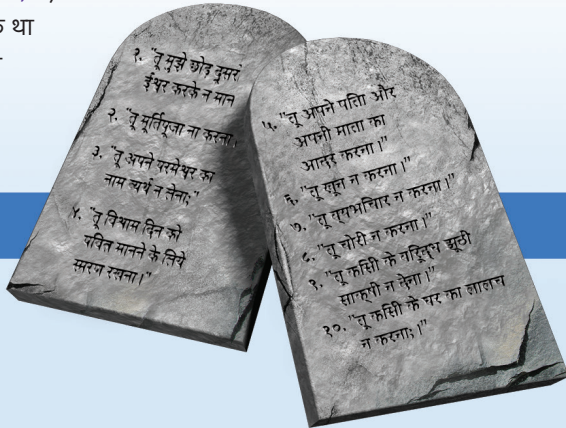 क था
१. "तू मुझे छोड़ दूसरे
ईश्वर करके न मान
२. "तू मूर्तिपूजा ना करना।
३. "तू अपने परमेश्वर का
नाम व्यर्थ न लेना;"
४. "तू विश्राम दिन को
पवित मानने के लिये
स्मरण रखना।"
५. "तू अपने पिता और
अपनी माता का
आदर करना।"
६. "तू खून न करना।"
७. "तू वयभचिार न करना।"
८. "तू चोरी न करना।"
९. "तू कसिी के वरिद्ध झूठी
साक्षी न देना।"
१०. "तू कसिी के घर का लालच
न करना;।"